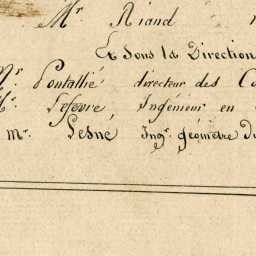 Mr Riand
Et Sous la Direction
Mr. Pontallié directeur des
Mr. Lefevre Ingénieur en
Mr. Lesné Ingr. géomètre